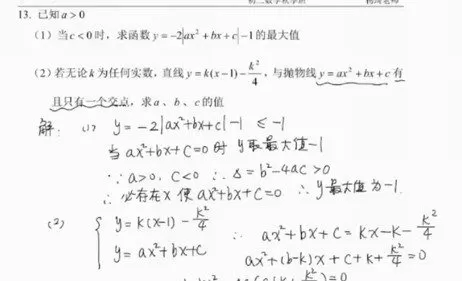 13. 已知 a > 0
(1) 当 c < 0 时，求函数 y = -2|ax² + bx + c| - 1 的最大值
(2) 若无论 k 为任何实数，直线 y = k(x-1) - k²/4，与抛物线 y = ax² + bx + c 有
且只有一个交点，求 a、b、c 的值
解: (1) y = -2|ax²+bx+c| -1 ≤ -1
当 ax²+bx+c=0 时 y取最大值-1
∵ a>0, c<0 ∴ Δ = b²-4ac >0
∴ 必存在x 使 ax²+bx+c=0 ∴ y最大值为-1.
(2) { y = k(x-1) - k²/4 ∴ ax²+bx+c = kx-k-k²/4
y = ax²+bx+c ax²+(b-k)x+c+k+k²/4=0